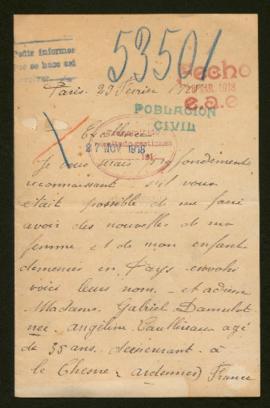 Pedir informes
que se hace así
53501
Fecho
MAR. 1918
e.a.e
Paris. 23 Février
POBLACION
CIVIL
Excellence
27 NOV 1918
Je vous serais profondément
reconnaissant s'il vous
était possible de me faire
avoir des nouvelles de ma
femme et de mon enfant
demeurés en Pays envahi
voici leurs nom. et adresse
Madame. Gabriel
née. Angéline agé
de 35 ans. demeurant. à
le Chesne. ardennes France